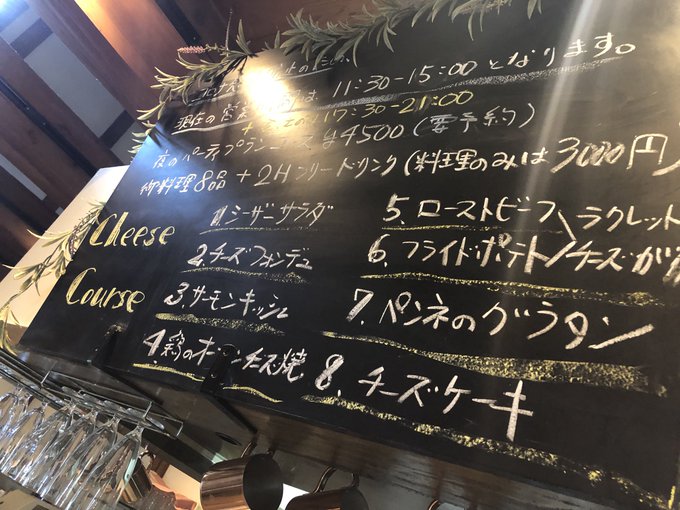 のため、
現在の営業時間は 11:30-15:00 となります。
17:30-21:00
夜のパーティープランコース ¥4500 (要予約)
御料理8品 + 2Hフリードリンク (料理のみは 3000円
Cheese
Course
1.シーザーサラダ
2.チーズフォンデュ
3.サーモンキッシュ
4.鶏のオーブンチーズ焼
5.ローストビーフ
6.フライドポテト
ラクレット
チーズがけ
7.ペンネのグラタン
8.チーズケーキ